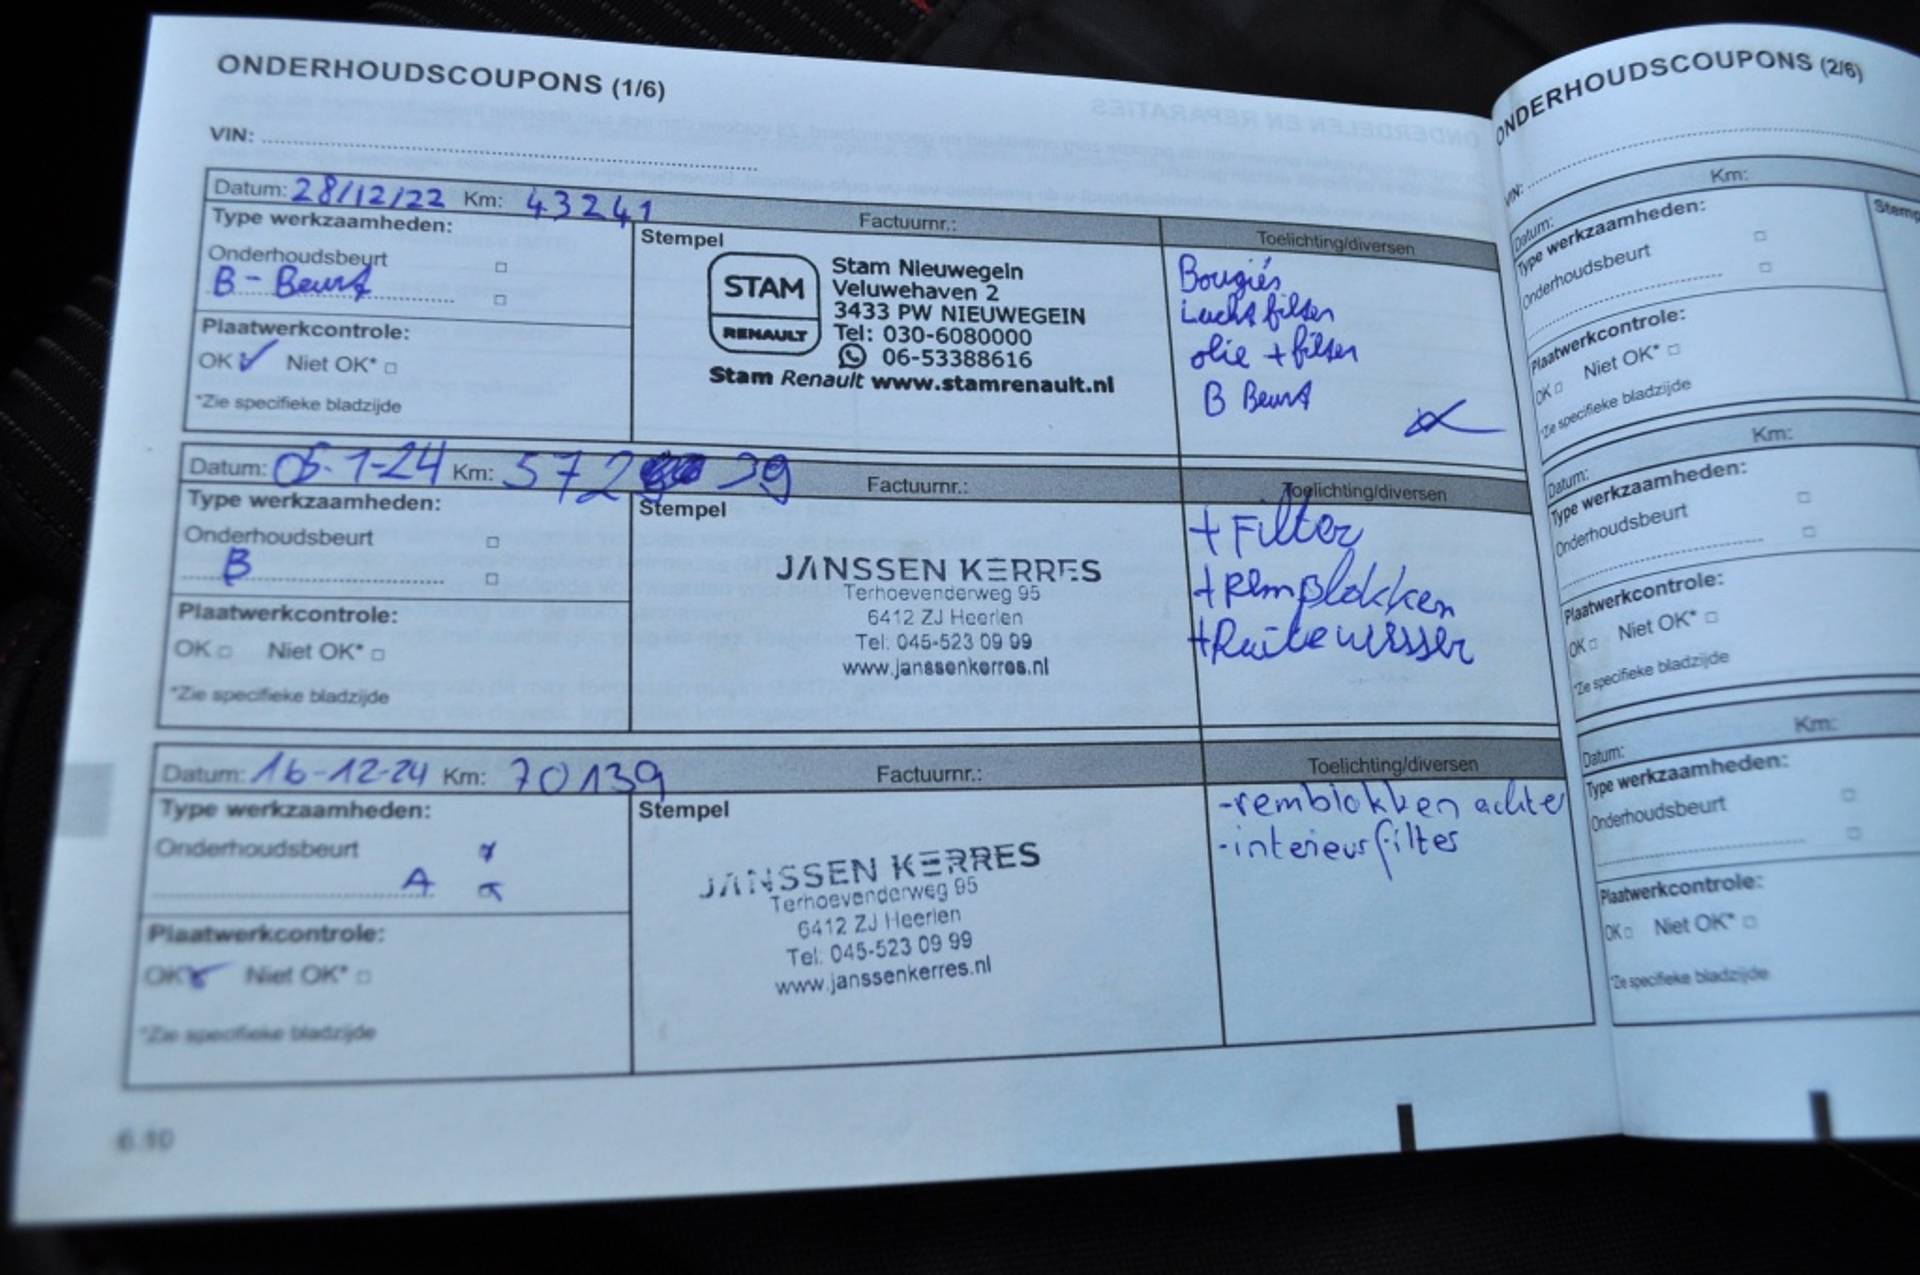 ONDERHOUDSCOUPONS (1/6)
VIN:
Datum: 28/12/22 Km: 43241
Factuurnr.:
Toelichting/diversen
Type werkzaamheden:
Onderhoudsbeurt
B - Beurt
Plaatwerkcontrole:
OK Niet OK*
*Zie specifieke bladzijde
Stempel
STAM
RENAULT
Stam Nieuwegein
Veluwehaven 2
3433 PW NIEUWEGEIN
Tel: 030-6080000
06-53388616
Stam Renault www.stamrenault.nl
Bougiés
Luchtfilter
olie + filter
B Beurt
Datum: 05-1-24 Km: 572 39
Factuurnr.:
Toelichting/diversen
Type werkzaamheden:
Onderhoudsbeurt
B
Plaatwerkcontrole:
OK Niet OK*
*Zie specifieke bladzijde
Stempel
JANSSEN KERRES
Terhoevenderweg 95
6412 ZJ Heerlen
Tel: 045-523 09 99
www.janssenkerres.nl
+ Filter
+ Remblokken
+ Ruitewisser
Datum: 16-12-24 Km: 70139
Factuurnr.:
Toelichting/diversen
Type werkzaamheden:
Onderhoudsbeurt
A
Plaatwerkcontrole:
OK Niet OK*
*Zie specifieke bladzijde
Stempel
JANSSEN KERRES
Terhoevenderweg 95
6412 ZJ Heerlen
Tel: 045-523 09 99
www.janssenkerres.nl
-remblokken achter
-interieurfilter
6.10
ONDERHOUDSCOUPONS (2/6)
VIN:
Datum:
Km:
Type werkzaamheden:
Onderhoudsbeurt
Stemp
Plaatwerkcontrole:
OK Niet OK*
*Zie specifieke bladzijde
Datum:
Km:
Type werkzaamheden:
Onderhoudsbeurt
Plaatwerkcontrole:
OK Niet OK*
*Zie specifieke bladzijde
Datum:
Km:
Type werkzaamheden:
Onderhoudsbeurt
Plaatwerkcontrole:
OK Niet OK*
*Zie specifieke bladzijde